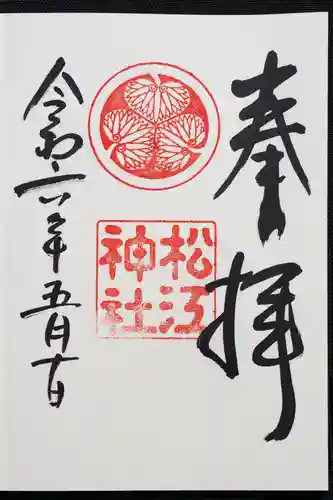 奉拝
松江
神社
令和六年五月十日